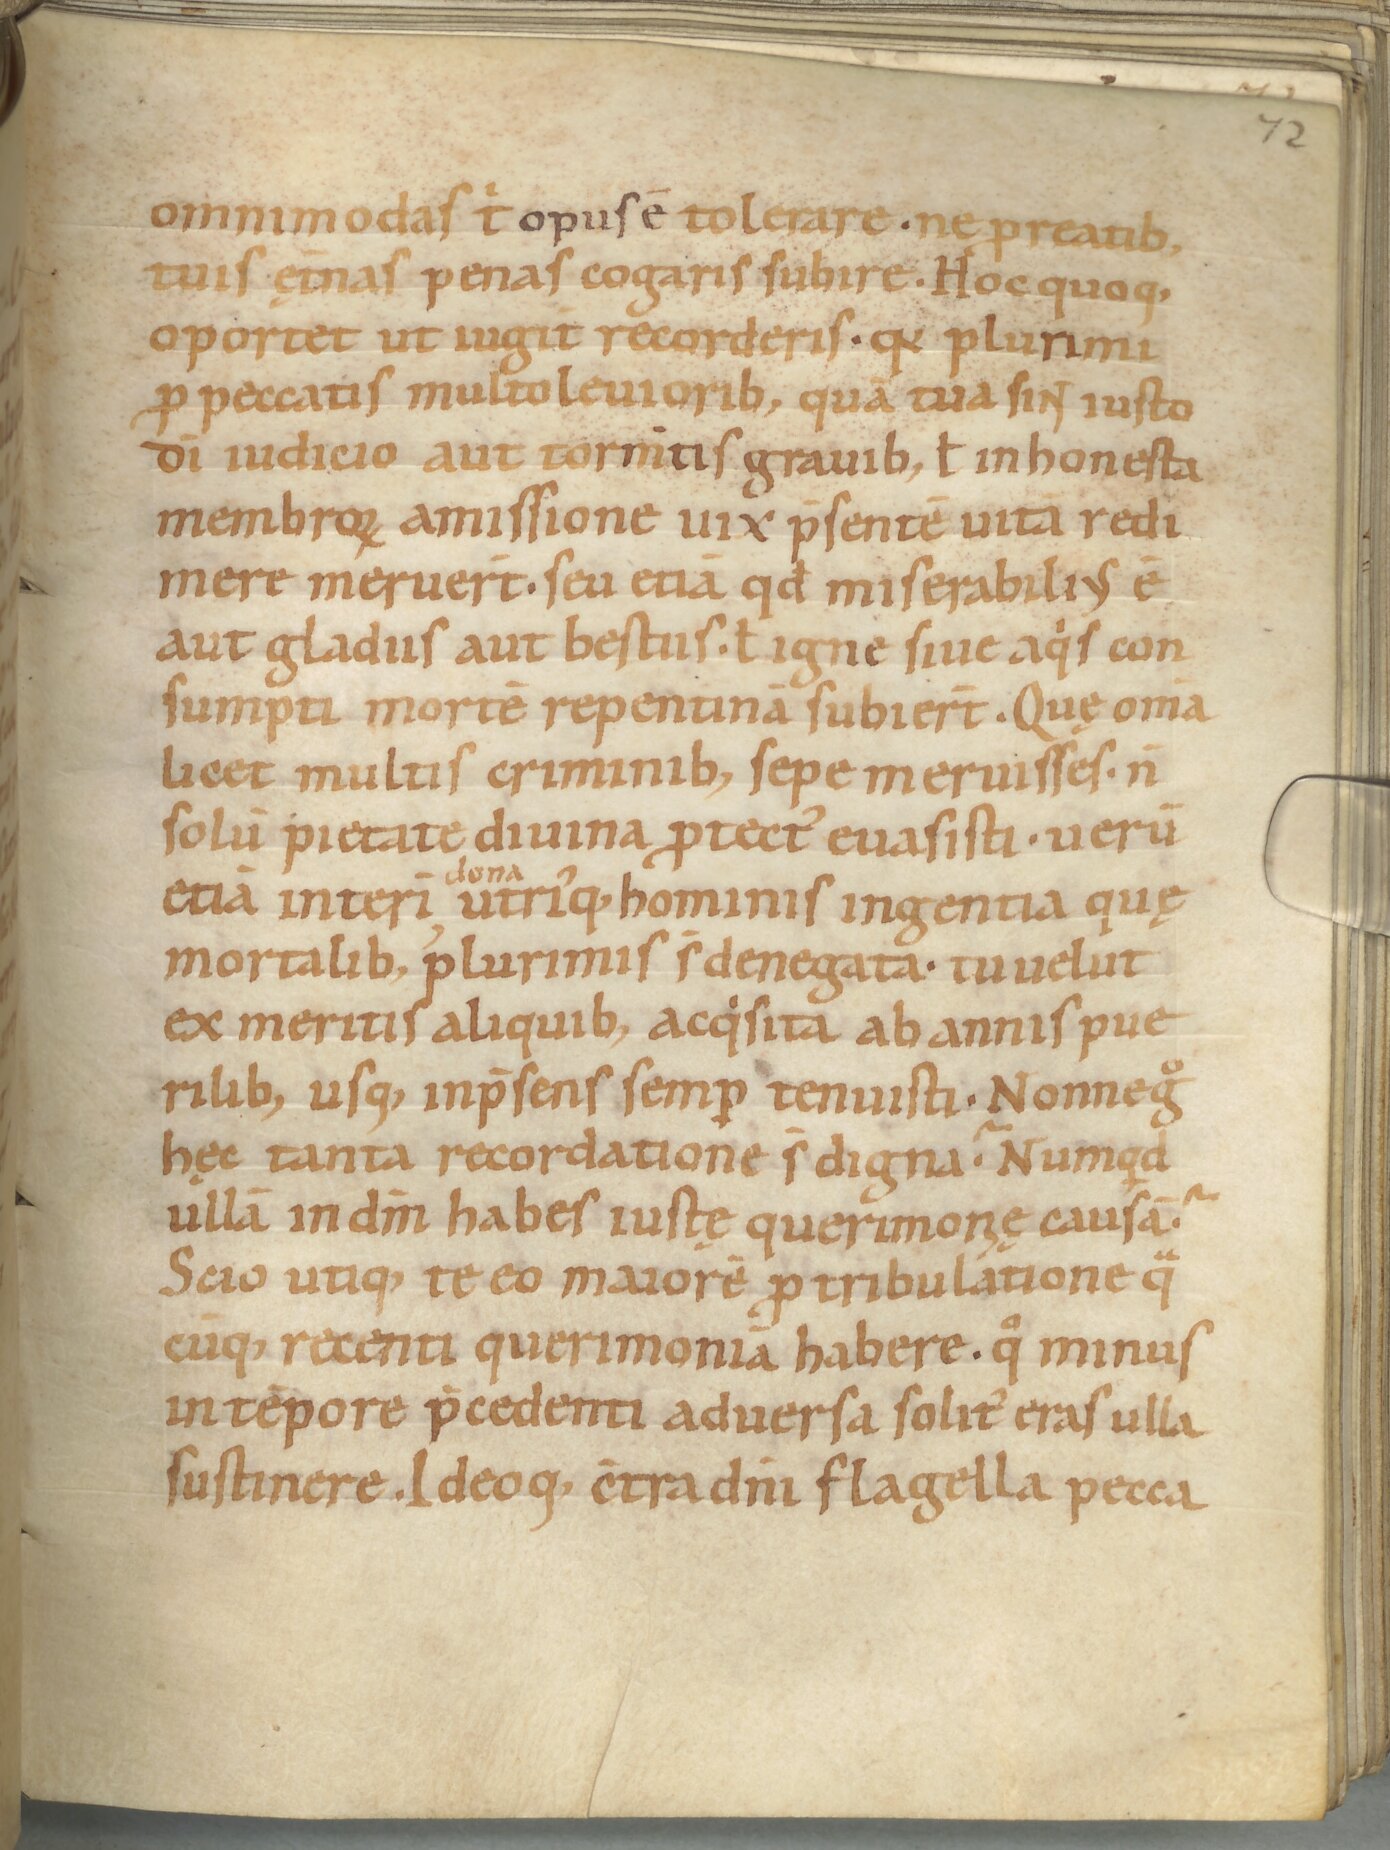 72
omnimodas t͛ opus ē tolerare · nę ꝓ reatib;
tuis ęt̄nas penas cogaris subire · Hoc quoq;
oportet ut iugit̄ recorderis · qꝫ plurimi
ꝓ peccatis multo leuiorib; quā tua sin̄ iusto
dī iudicio aut torm̄tis grauib; ł inhonesta
membroꝝ amissione uix p̄sentē uitā redi
mere meruer̄t · seu etiā qđ miserabili᷒ ē
aut gladiis aut bestiis · ł igne siue aqͥs con
sumpti mortē repentinā subier̄t · Quę om̄ia
licet multis criminib; sepe meruisses · n̄
solū pietate diuina ꝓtect᷒ euasisti · uerū
etiā interī, dona utri᷒q; hominis ingentia quę
mortalib; plurimis s̄ denegata · tu uelut
ex meritis aliquib; acqͥsita ab annis pue
rilib; usq; in p̄sens semꝑ tenuisti · Nonne gͦ
hęc tanta recordatione s̄ digna ·~ Numqͥd
ullā in dm̄ habes iustę querimonię causā ·~
Scio utiq; te eo maiorē ꝓ tribulatione qͣ
cūq; recenti querimoniā habere · qͦ minus
in tēpore p̄cedenti aduersa solit᷒ eras ulla
sustinere · Ideoq; c̄tra dn̄i flagella pecca